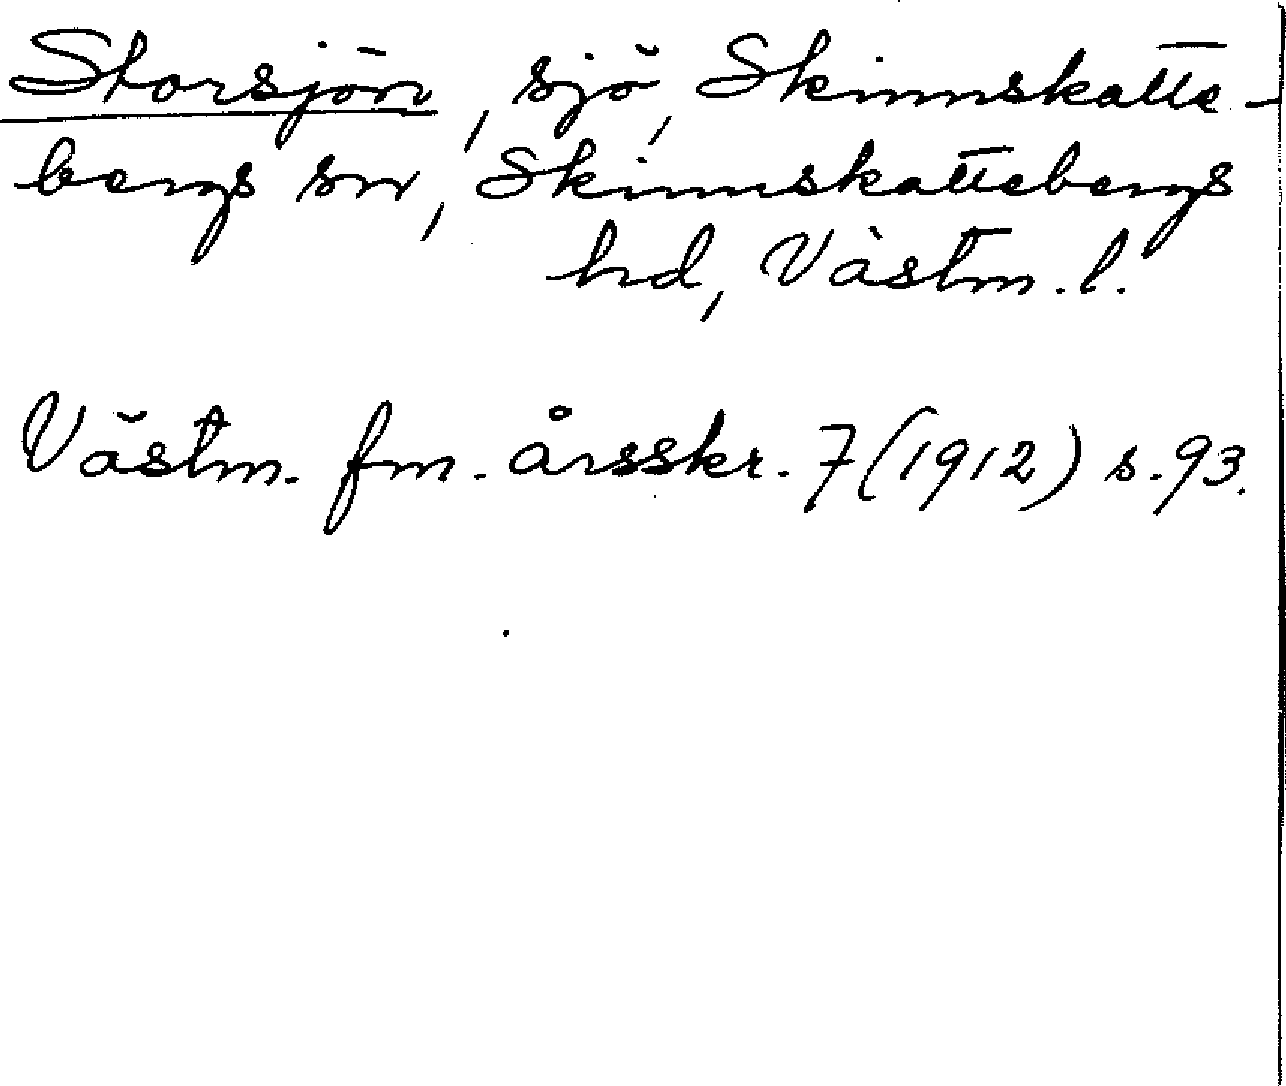 Storsjön, sjö, Skinnskatte-
bergs sn, Skinnskattebergs
hd, Västm. l.
Västm. fm. årsskr. 7 (1912) s. 93.